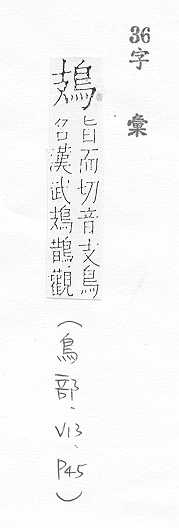 36字彙
鳷
旨而切音支鳥
名漢武鳷鵲觀
(鳥部、V13、P45)